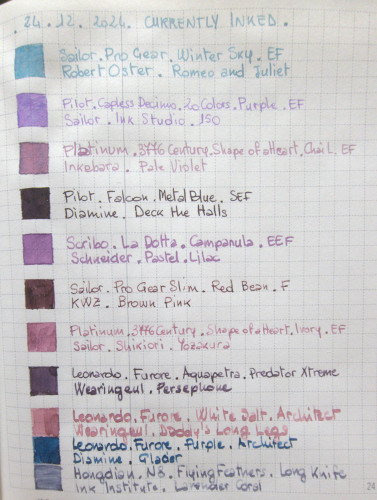 24.12.2024. CURRENTLY INKED.
Sailor. Pro Gear. Winter Sky. EF
Robert Oster. Romeo and Juliet
Pilot. Capless Decimo. 20 Colors. Purple. EF
Sailor. Ink Studio. 150
Platinum. 3776 Century. Shape of a Heart. Chai L. EF
Inkebara. Pale Violet
Pilot. Falcon. Metal Blue. SEF
Diamine. Deck the Halls
Scribo. La Dotta. Campanula. EEF
Schneider. Pastel. Lilac
Sailor. Pro Gear Slim. Red Bean. F
KWZ. Brown Pink
Platinum. 3776 Century. Shape of a Heart. Ivory. EF
Sailor. Shikiori. Yozakura
Leonardo. Furore. Aquapetra. Predator Xtreme
Wearingeul. Persephone
Leonardo. Furore. White Salt. Architect
Wearingeul. Daddy's Long Legs
Leonardo. Furore. Purple. Architect
Diamine. Glader
Hongdian. N8. Flying Feathers. Long Knife
Ink Institute. Lavender Coral